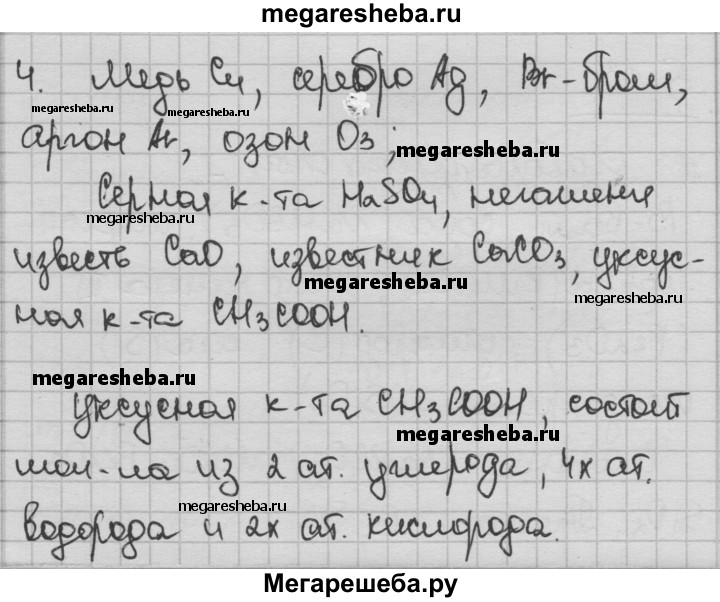 megaresheba.ru
4. Медь Cu, серебро Ag, Br-бром,
megaresheba.ru megaresheba.ru megaresheba.ru
аргон Ar, озон O3;
megaresheba.ru
Серная к-та H2SO4, негашеная
megaresheba.ru
известь CaO, известняк CaCO3, уксус-
megaresheba.ru
megaresheba.ru
ная к-та CH3COOH.
megaresheba.ru
Уксусная к-та CH3COOH, состоит
megaresheba.ru
мол-ла из 2 ат. углерода, 4х ат.
megaresheba.ru
водорода и 2х ат. кислорода.
Мегарешеба.ру